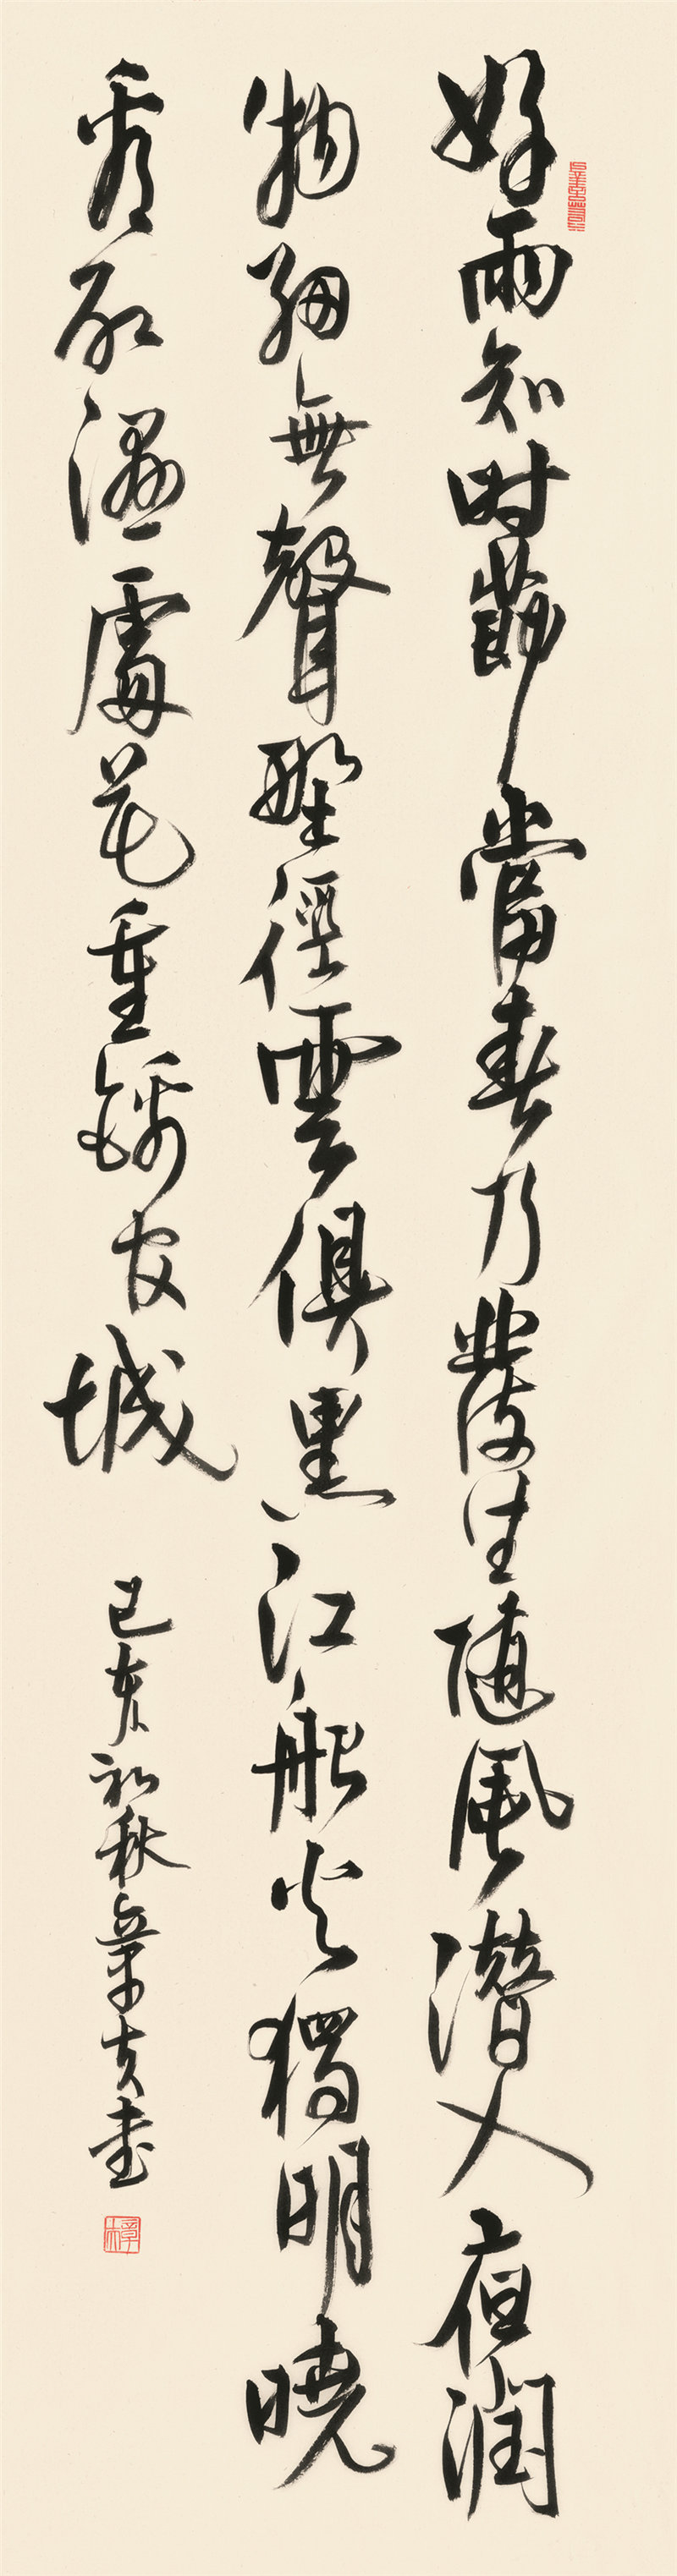 好雨知时節當春乃發生随風潛入夜潤
物細無聲野徑雲俱黑江船火獨明曉
看紅濕處花重錦官城
己亥初秋章夫書